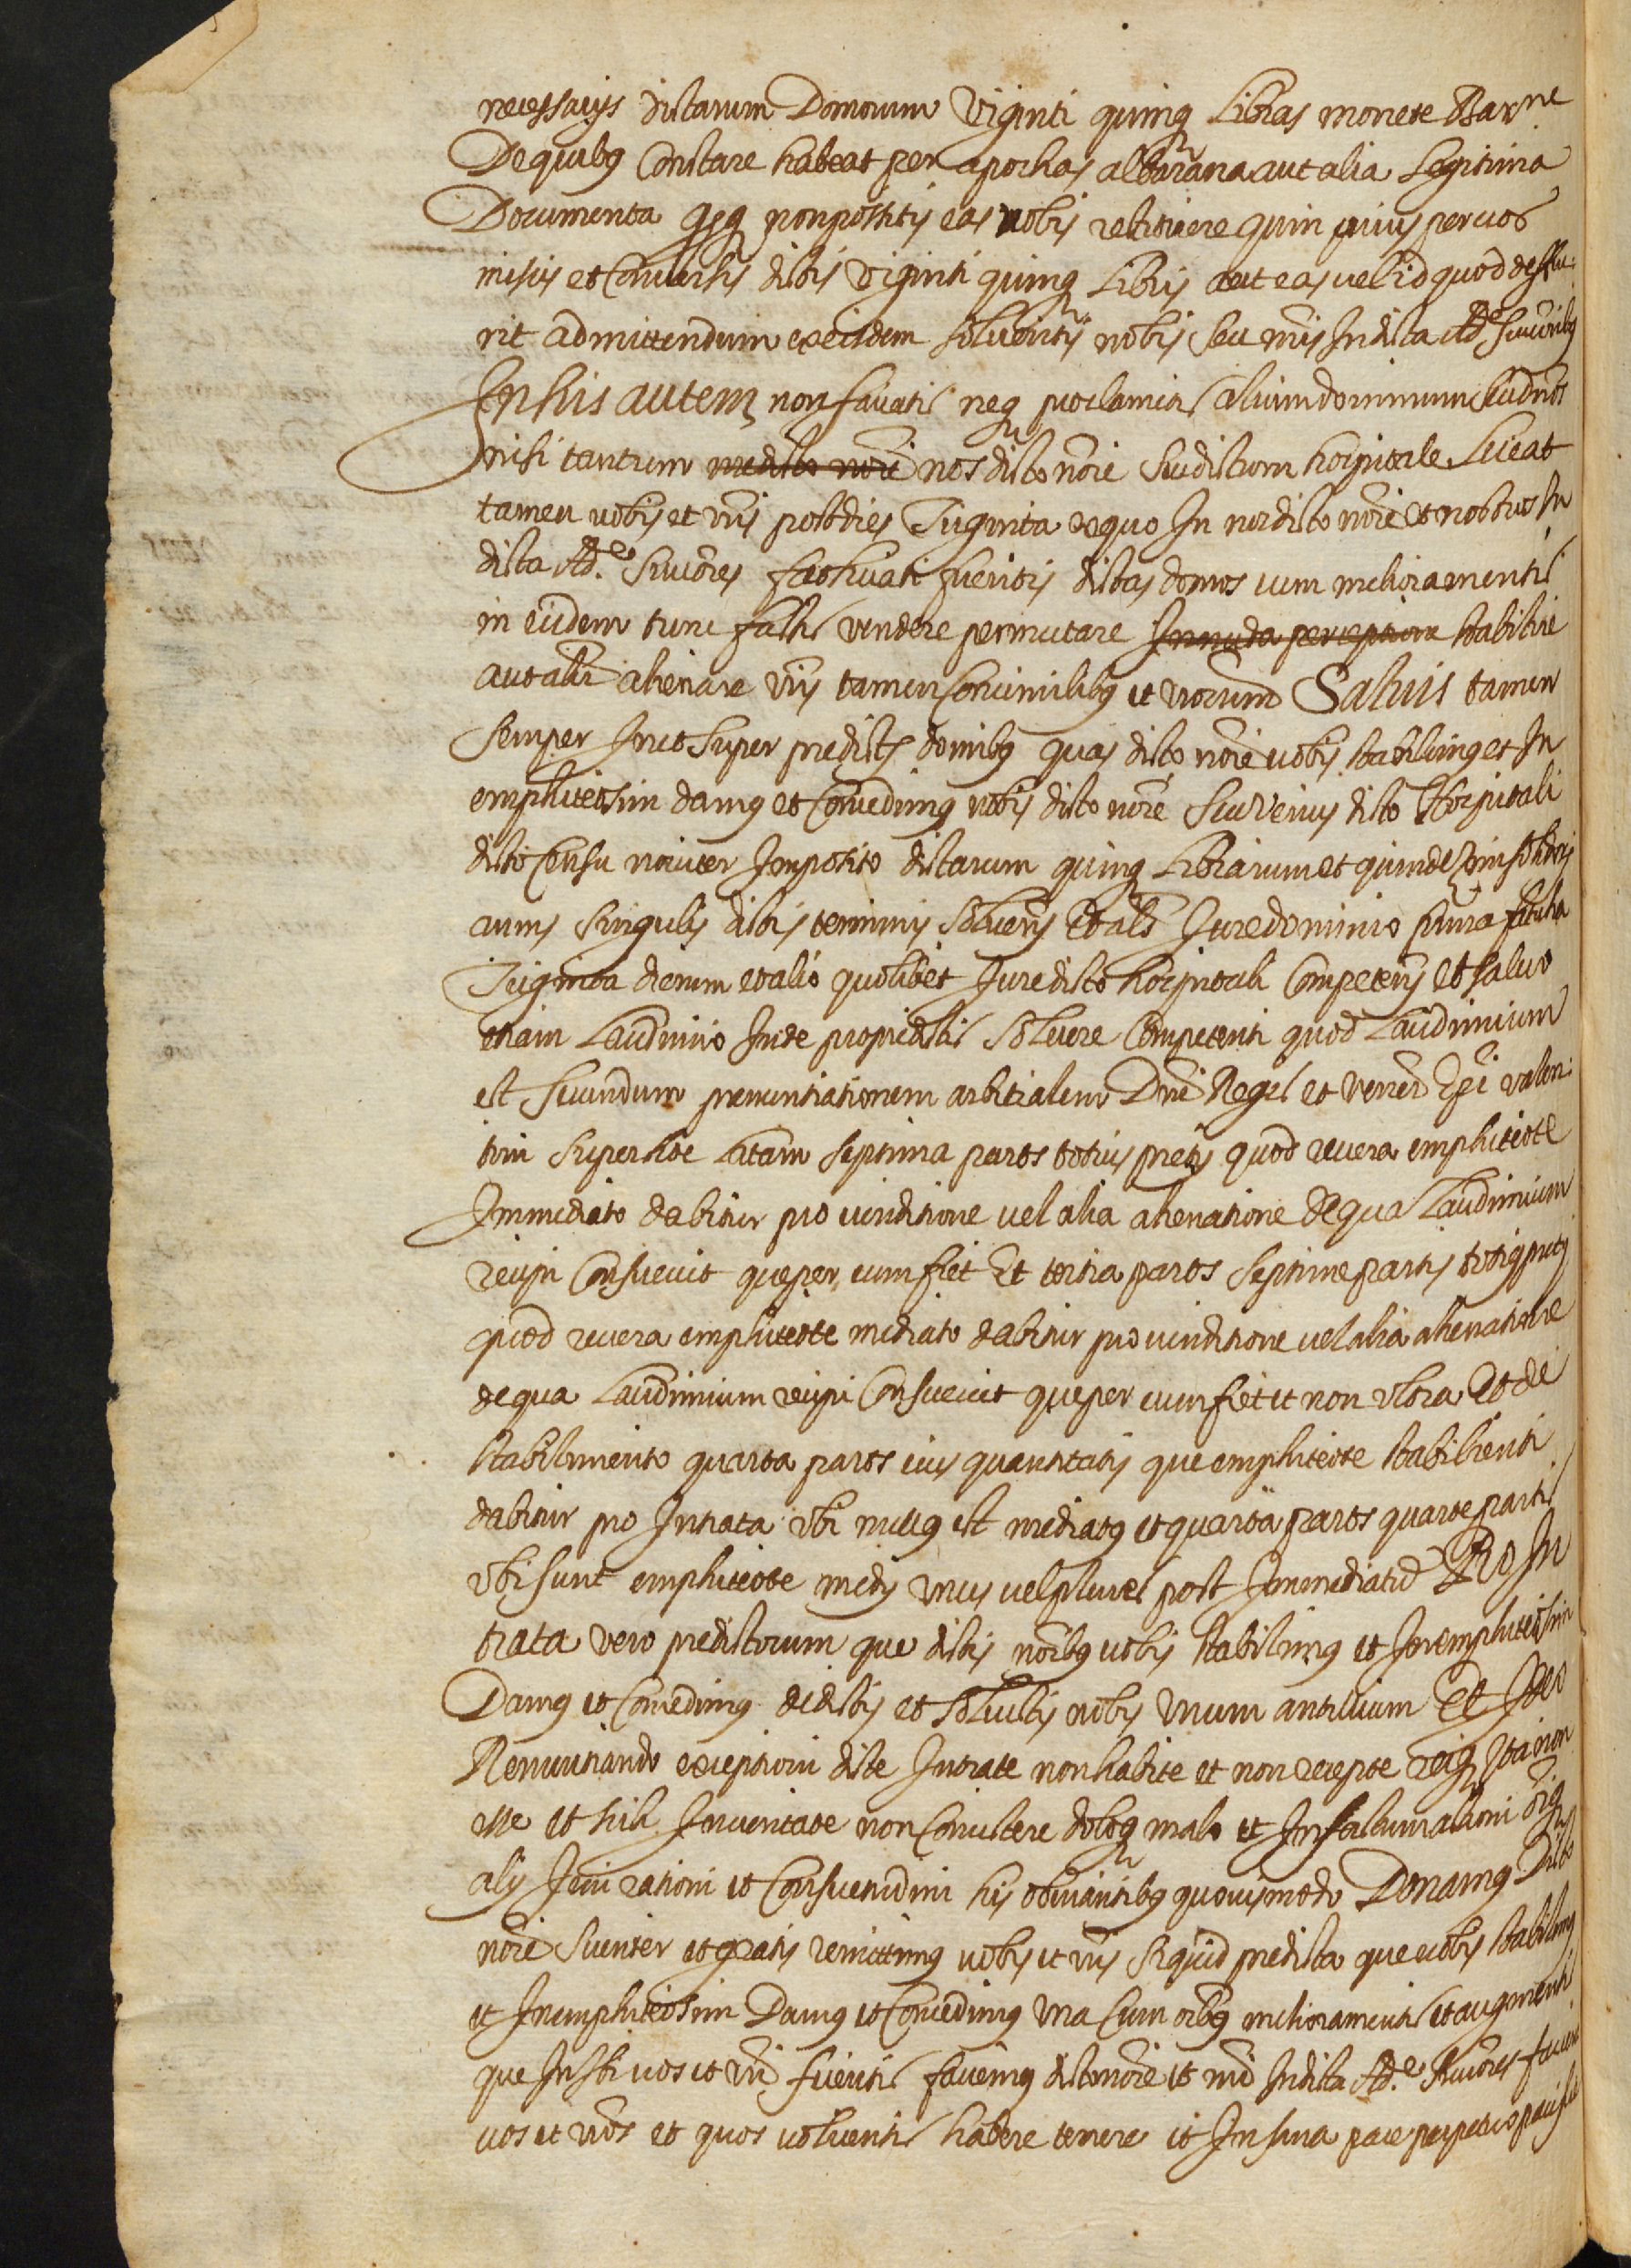 necessarijs dictarum Domorum Viginti quinq Libras monete Barne
De quibus Constare habeat per apochas albarana aut alia Legitima
Documenta non possitis eas vobis retinere quin prius per vos
misis et Conversis dictis Viginti quinq Libris aut eas vel id quod defue
rit ad mittendum exeisdem solveritis nobis seu nris In dicta Ad.e Succoribus
In his autem non faciatis neq proclametis alium dominum seu dnos
nisi tantum medicto noie nos dicto noie seu dictum hospitale Liceat
tamen vobis et vris post dies Triginta ex quo In nos dicto noie et nostros In
dicta Ad.e Succores fatigati fueritis dictas domos cum melioramentis
in eisdem tunc factis vendere permutare In nuda perceptione stabilire
aut alr alienare vris tamen Consimilibus et vrorum Salvis tamen
semper In et super predictis domibus quas dicto noie vobis stabilimus et In
emphiteosim damus et Concedimus nobis dicto noie seu verius dicto Hospitali
dicto Censu noviter Imposito dictarum quinq Librarum et quindecim solidor
annis singulis dictis terminis solvens Et als Jure dominio firma faticha
Triginta dierum et alio quolibet Jure dicto hospitali Competens et salvo
etiam Laudimio Inde pro predictis solvere Competenti quod Laudimium
est secundum pronuntiationem arbitralem Dni Regis et vener Epi valen
tini super hoc Latam septima pars totius pretij quod revera emphiteote
Immediato dabitur pro venditione vel alia alienatione de qua Laudimium
recipi Consuevit que per eum fiet Et tertia pars septime partis totius pretij
quod revera emphiteote mediato dabitur pro venditione vel alia alienatione
de qua Laudimium recipi Consuevit que per eum fiet et non ultra Et de
stabilimento quarta pars eius quantitatis que emphiteote stabilienti
dabitur pro Intrata ubi nullus est mediatus et quarta pars quarte partis
ubi sunt emphiteote medij unus vel plures post Immediatum Pro In
trata vero predictorum que dictis noibus vobis stabilimus et In emphiteosim
Damus et Concedimus dedistis et solvistis nobis unum Et Ideo
Renuntiando exceptioni dicte Intrate non habite et non recepte reiq Ita non
esse et sic In veritate non Consistere doloq malo et In factum actioni oiq
alij Juri rationi et Consuetudini his obviantibus quovismodo Donamus Dicto
noie scienter et gratis remittimus vobis et vris siquid predicta que vobis stabilimus
et In emphiteosim Damus et Concedimus una Cum oibus melioramentis et augmentis
que Insti vos et vri feceritis faciemus dicto noie et nri In dicta Ad.e Succores facient
vos et vros et quos volueritis habere tenere et In sana pace perpetuo